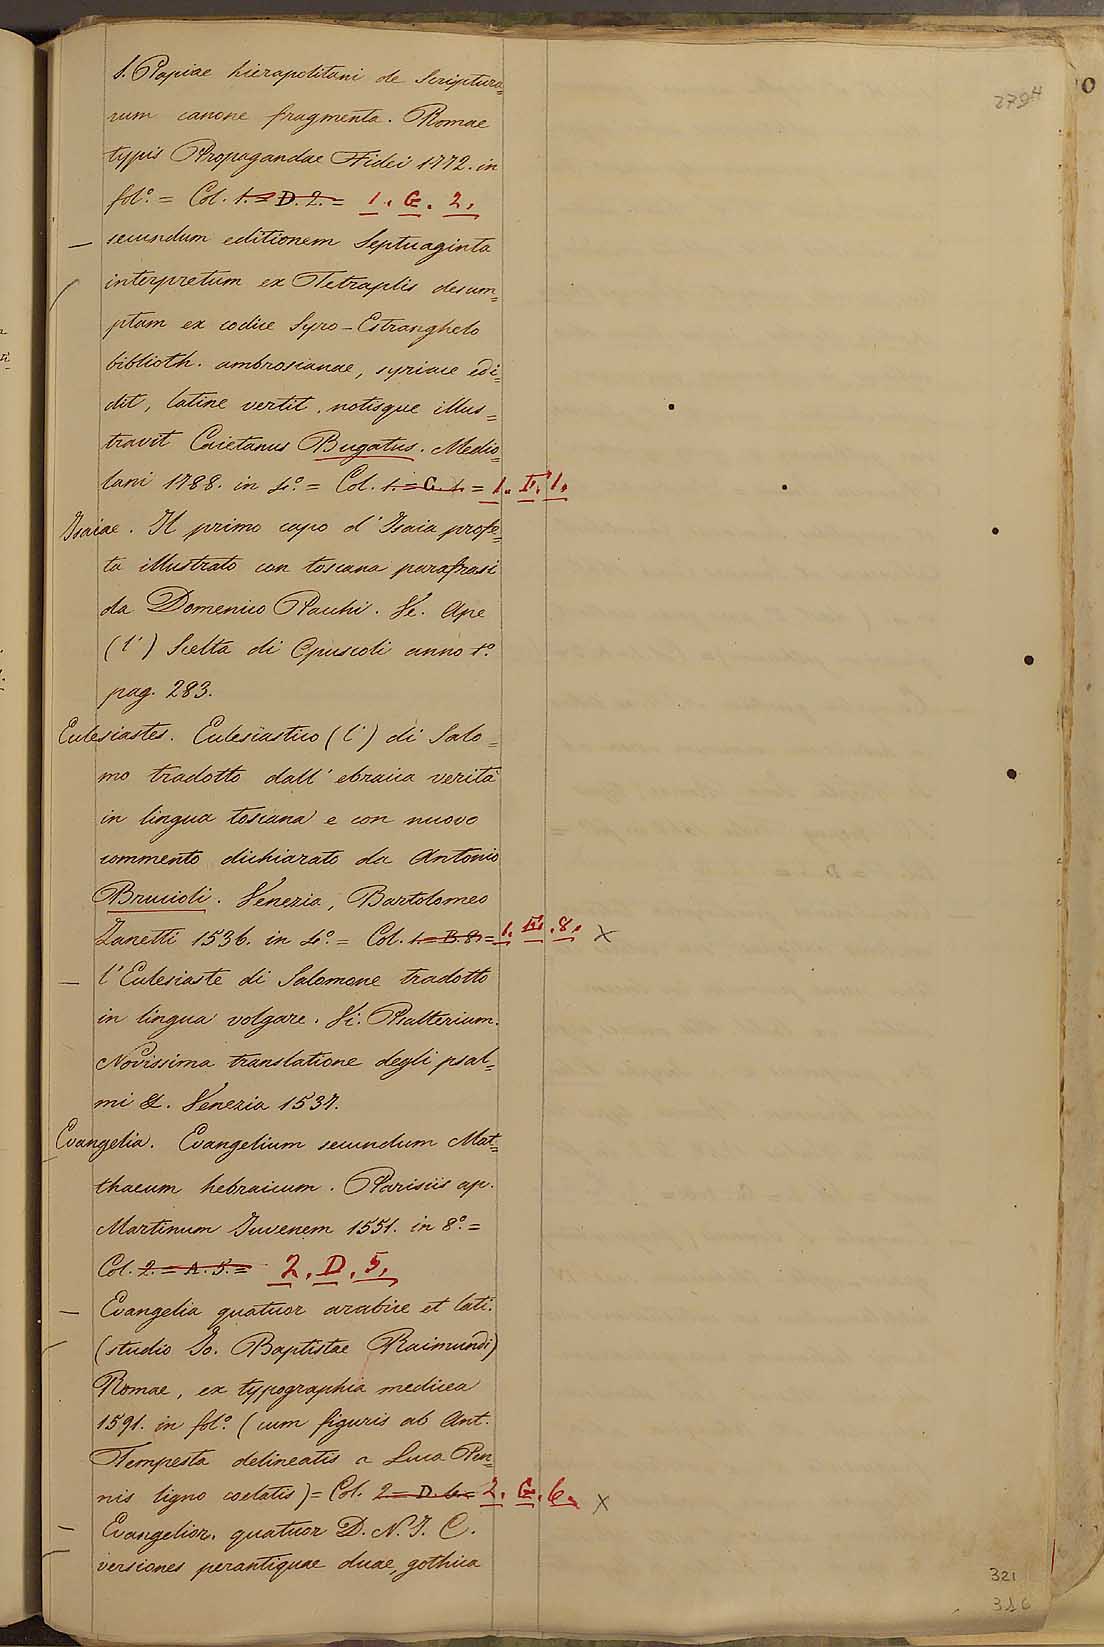 S. Papiae hierapolitani de Scriptura=
rum canone fragmenta. Romae
typis Propagandae Fidei 1772. in
fol.° = Col. 1. = D. 2. = 1. G. 2.
— secundum editionem Septuaginta
interpretum ex Tetraplis desum=
ptam ex codice Syro-Estranghelo
biblioth. ambrosianae, syriace edi=
dit, latine vertit, notisque illus=
travit Caietanus Bugatus. Medio=
lani 1788. in 4.° = Col. 1. = C. 1. = 1. F. 1.
Isaiae. Il primo capo d'Isaia profe=
ta illustrato con toscana parafrasi
da Domenico Pacchi. Ve. Ape
(l') Scelta di Opuscoli anno 1.°
pag. 283.
Eclesiastes. Eclesiastico (l') di Salo=
mo tradotto dall' ebraica verità
in lingua toscana e con nuovo
commento dichiarato da Antonio
Brucioli. Venezia, Bartolomeo
Zanetti 1536. in 4.° = Col. 1. = B. 8. = 1. E. 8. x
— l'Eclesiaste di Salomone tradotto
in lingua volgare. Vi. Psalterium.
Novissima translatione degli psal=
mi &. Venezia 1537.
Evangelia. Evangelium secundum Mat=
thaeum hebraicum. Parisiis ap.
Martinum Juvenem 1551. in 8.° =
Col. 2. = A. 5. = 2. D. 5.
— Evangelia quatuor arabice et lati.
(studio Jo. Baptistae Raimundi)
Romae, ex typographia medicea
1591. in fol.° (cum figuris ab Ant.
Tempesta delineatis a Luca Pen=
nis ligno coelatis) = Col. 2 = D. 6. = 2. G. 6. x
— Evangelior. quatuor D. N. J. C.
versiones perantiquae duae, gothica
321
316